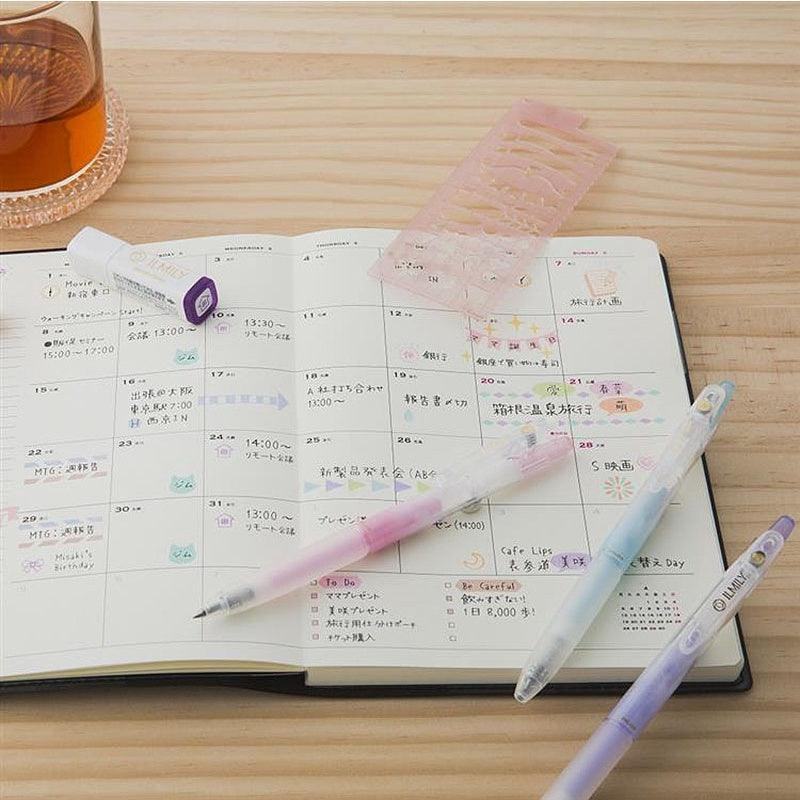 ILMILY
WEDNESDAY
THURSDAY
SUNDAY
1
Movie
新宿東口
3
4
IN
7
旅行計画
ウォーキングキャンペーン Start!
8
15:00~17:00
9
会議 13:00~
ジム
10
13:30~
リモート会議
11
12
銀行
ママ誕生日
14
15
16
出張@大阪
東京駅7:00
H 西京IN
17
18
A社打ち合わせ
13:00~
19
報告書〆切
20
箱根温泉旅行
愛
21
春菜
萌
22
MTG:週報告
23
24
14:00~
リモート会議
25
新製品発表会(AB
26
28
S 映画
29
MTG:週報告
Misaki's
Birthday
30
ジム
31
13:00~
リモート会議
プレゼン
ゼン(14:00)
Cafe Lips
表参道 美咲
替え Day
To Do
ママプレゼント
美咲プレゼント
旅行用仕分けポーチ
チケット購入
Be Careful
飲みすぎない!
1日 8,000 歩!
ILMILY